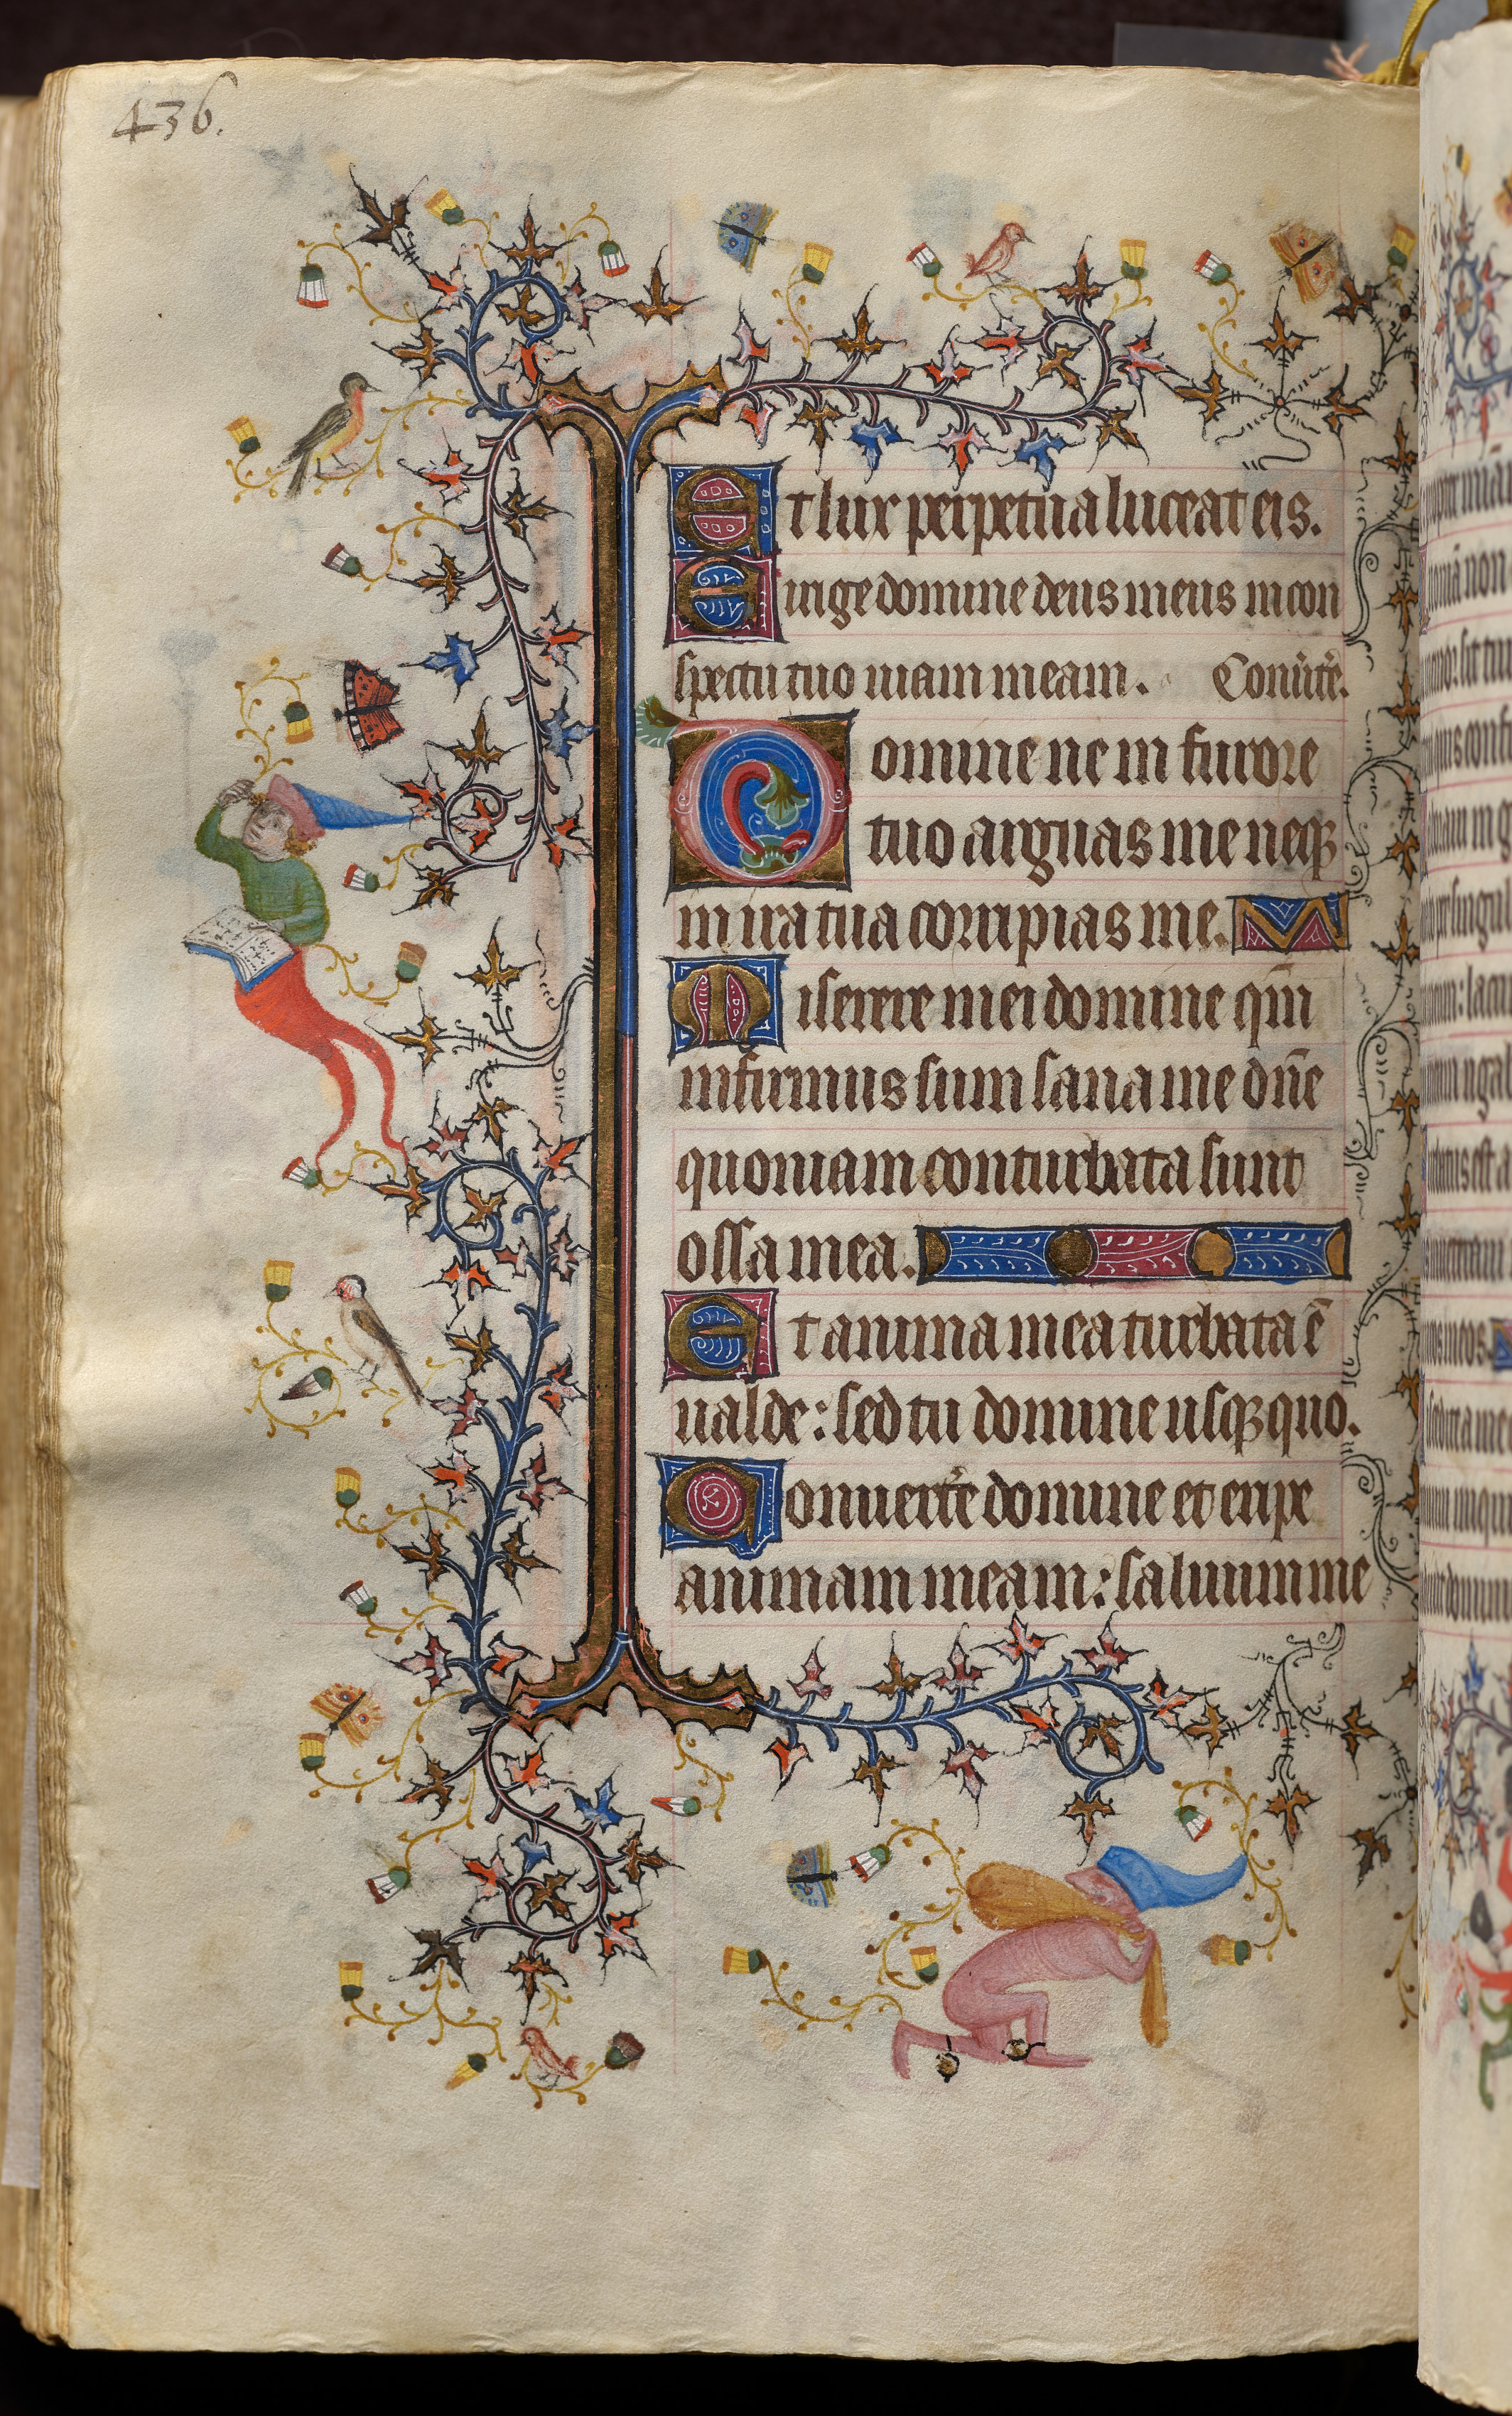 436.
Et lux perpetua luceat eis.
Eirige domine deus meus in con
spectu tuo uiam meam. Conũtẽ.
Domine ne in furore
tuo arguas me neqꝫ
in ira tua corripias me.
Miserere mei domine qm̄
infirmus sum sana me dn̄e
quoniam conturbata sunt
ossa mea.
Et anima mea turbata ē
ualde: sed tu domine usqꝫ quo.
Conuerte͛ domine et eripe
animam meam: saluum me